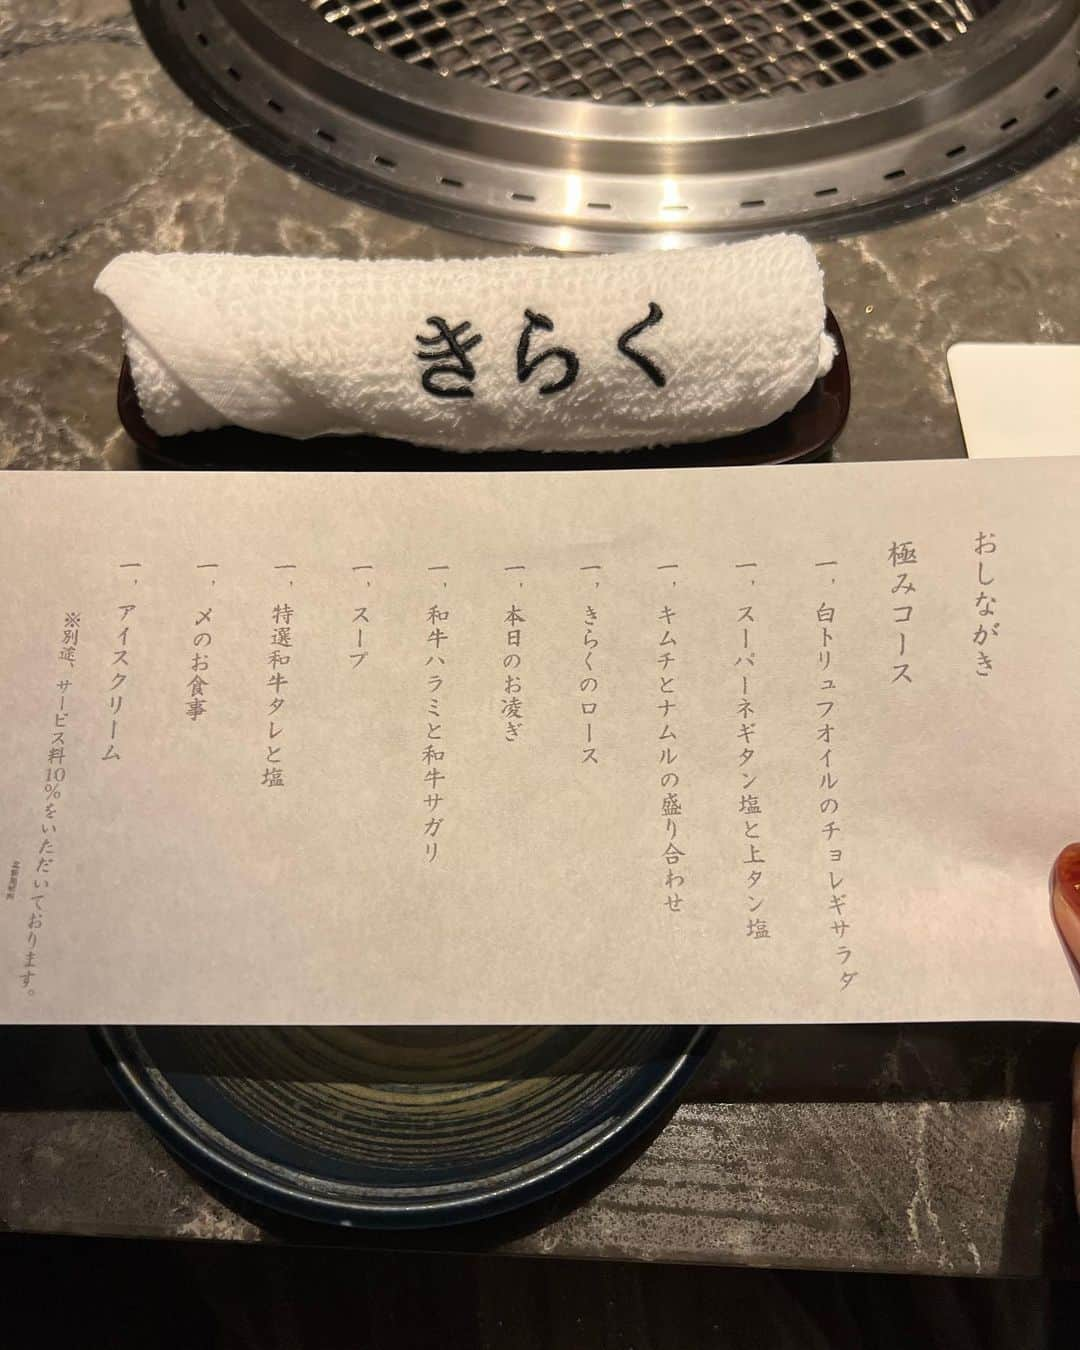 きらく
おしながき
極みコース
一, 白トリュフオイルのチョレギサラダ
一, スーパーネギタン塩と上タン塩
一, キムチとナムルの盛り合わせ
一, きらくのロース
一, 本日のお凌ぎ
一, 和牛ハラミと和牛サガリ
一, スープ
一, 特選和牛タレと塩
一, 〆のお食事
一, アイスクリーム
※別途、サービス料10%をいただいております。